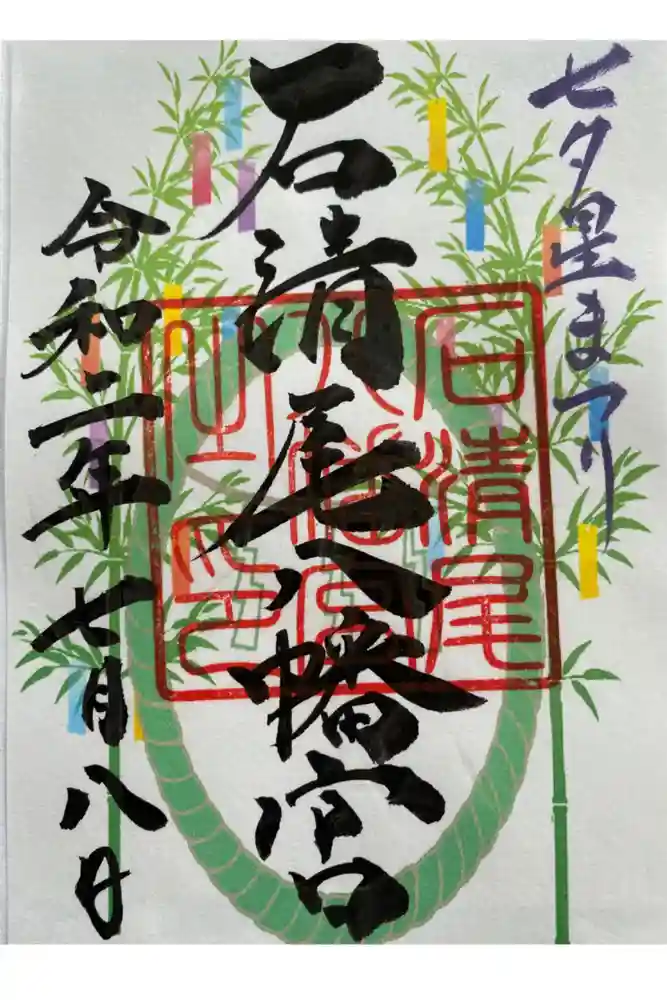 七夕星まつり
石清尾八幡宮
令和二年七月八日
石清尾
八幡宮
之印